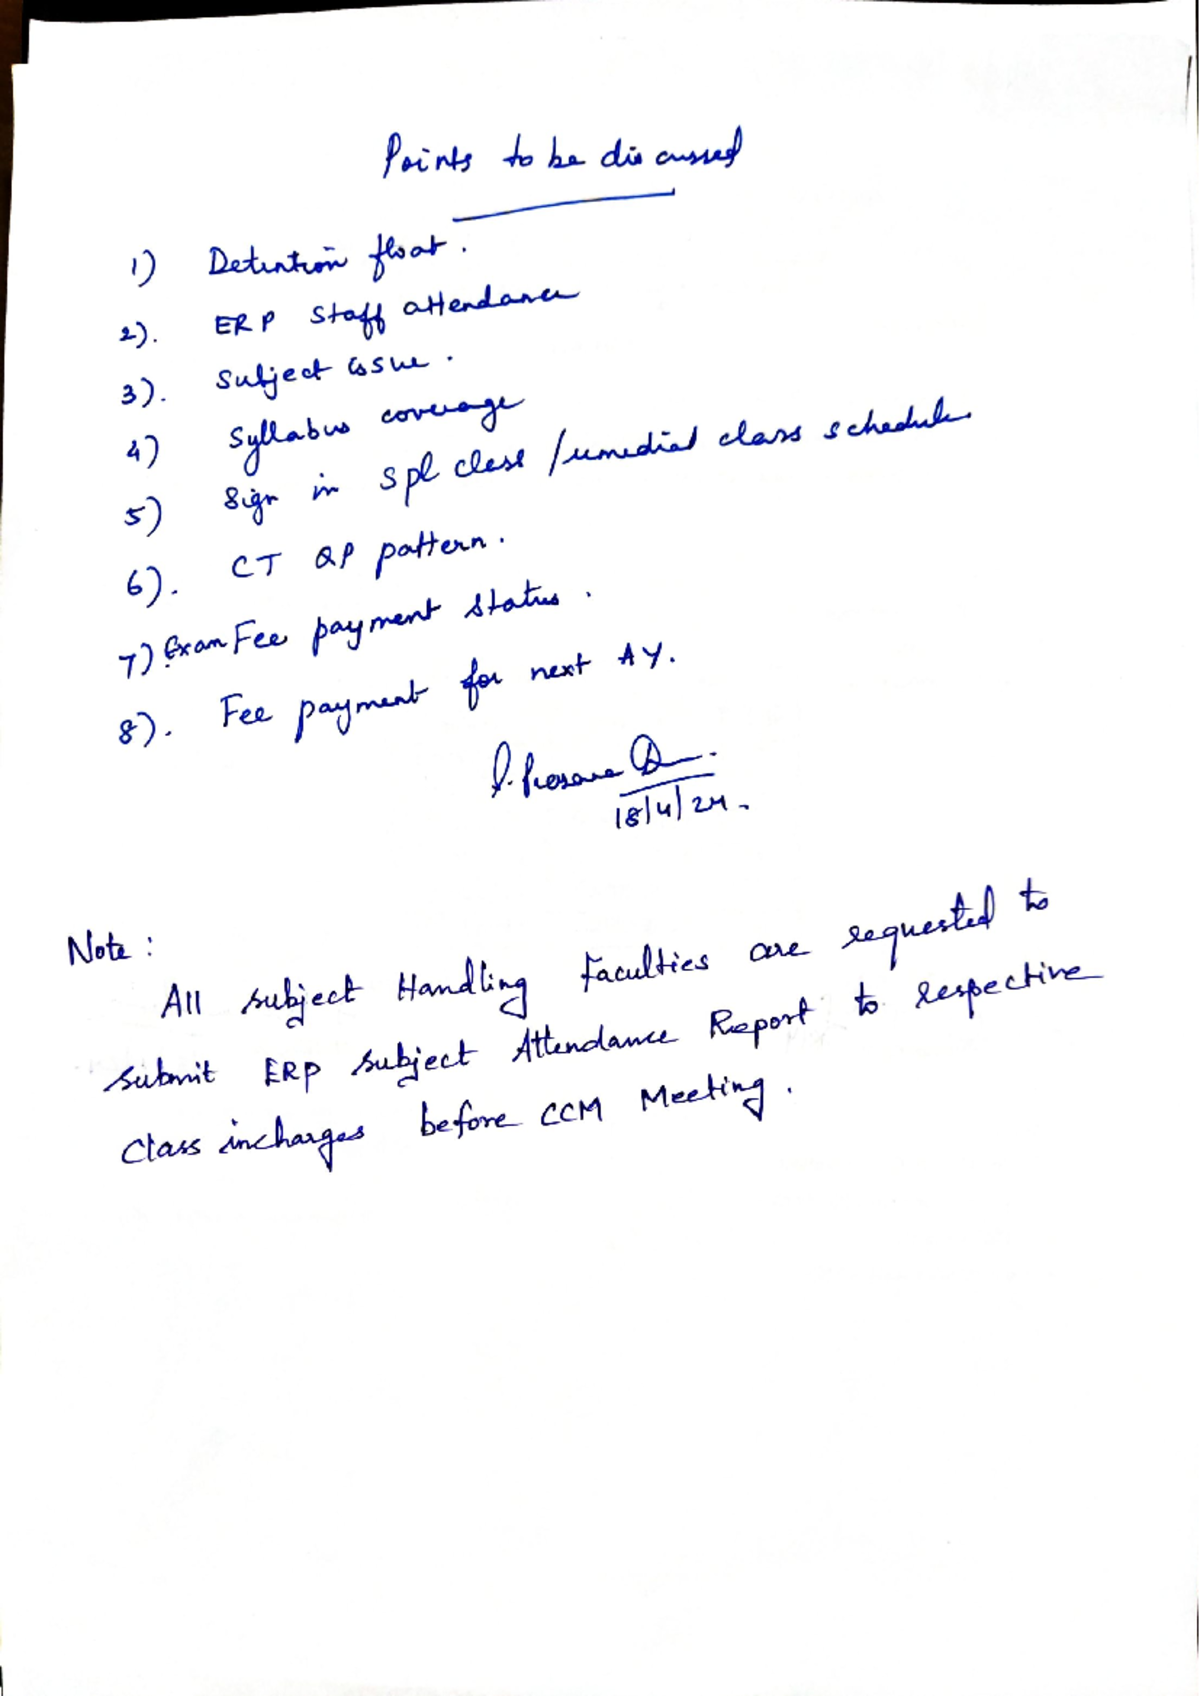 Points to be discussed
1) Detention float.
2). ERP Staff attendance
3). Subject issue.
4) Syllabus coverage
5) Sign in Spl class /remedial class schedule
6). CT QP pattern.
7) Exam Fee payment status.
8). Fee payment for next AY.
18/4/24.
Note:
All subject Handling Faculties are requested to
submit ERP subject Attendance Report to respective
Class incharges before CCM Meeting.